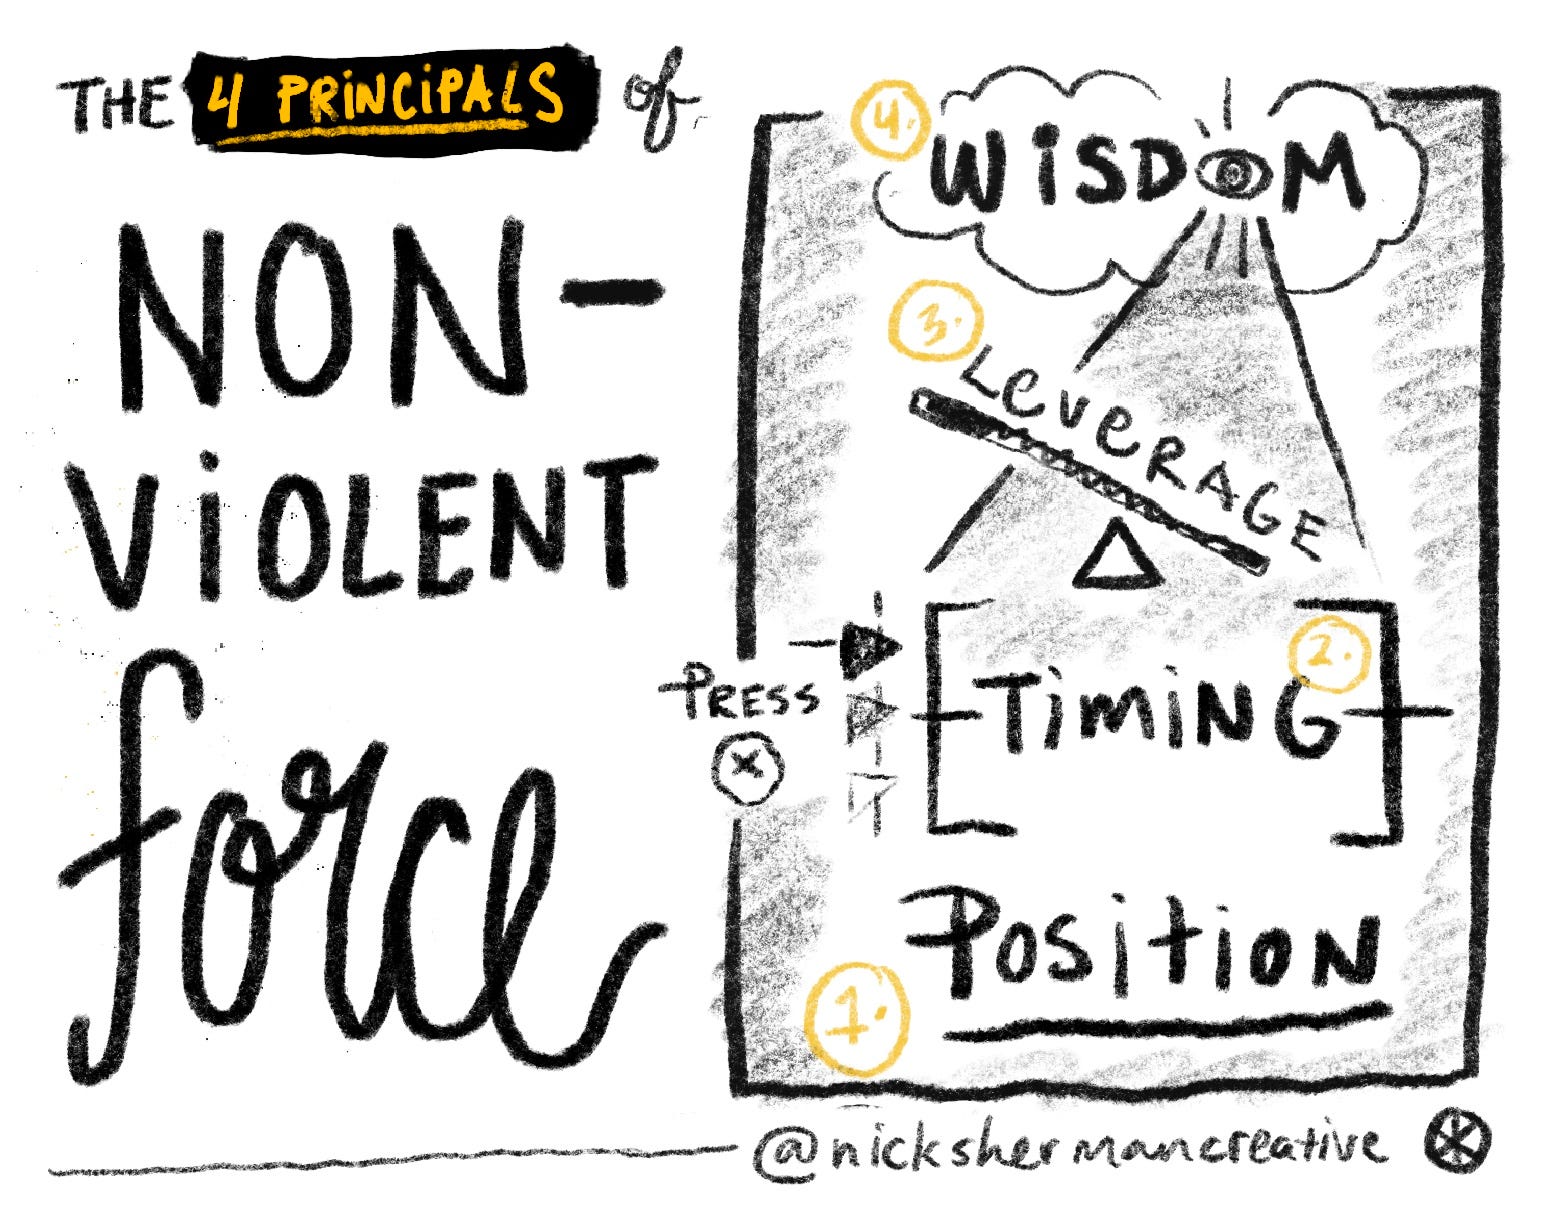 THE 4 PRINCiPALS of
NON-
ViOLENT
force
4. WiSDOM
3. LeveRAGE
2. TiMiNG
PRESS
X
1. POSiTiON
@nickshermancreative